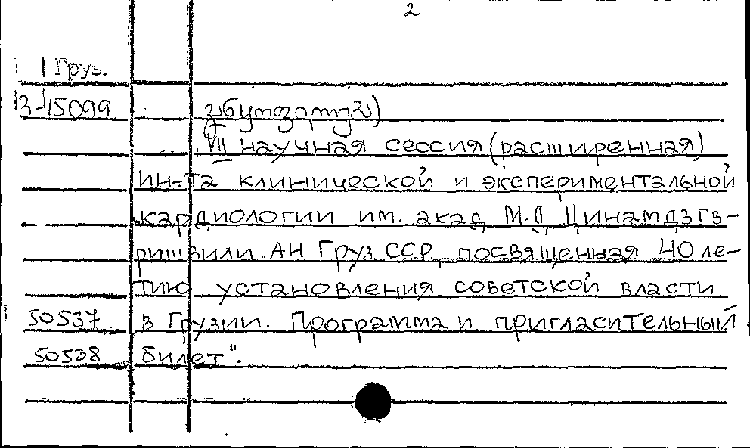 2
Груз.
3-15099
VII научная сессия (расширенная)
ин-та клинической и экспериментальной
кардиологии им. акад. М.Д. Цинамдзгв-
ришвили АН Груз ССР, посвященная 40 ле-
тию установления советской власти
50537 в Грузии. Программа и пригласительный
50538 билет".